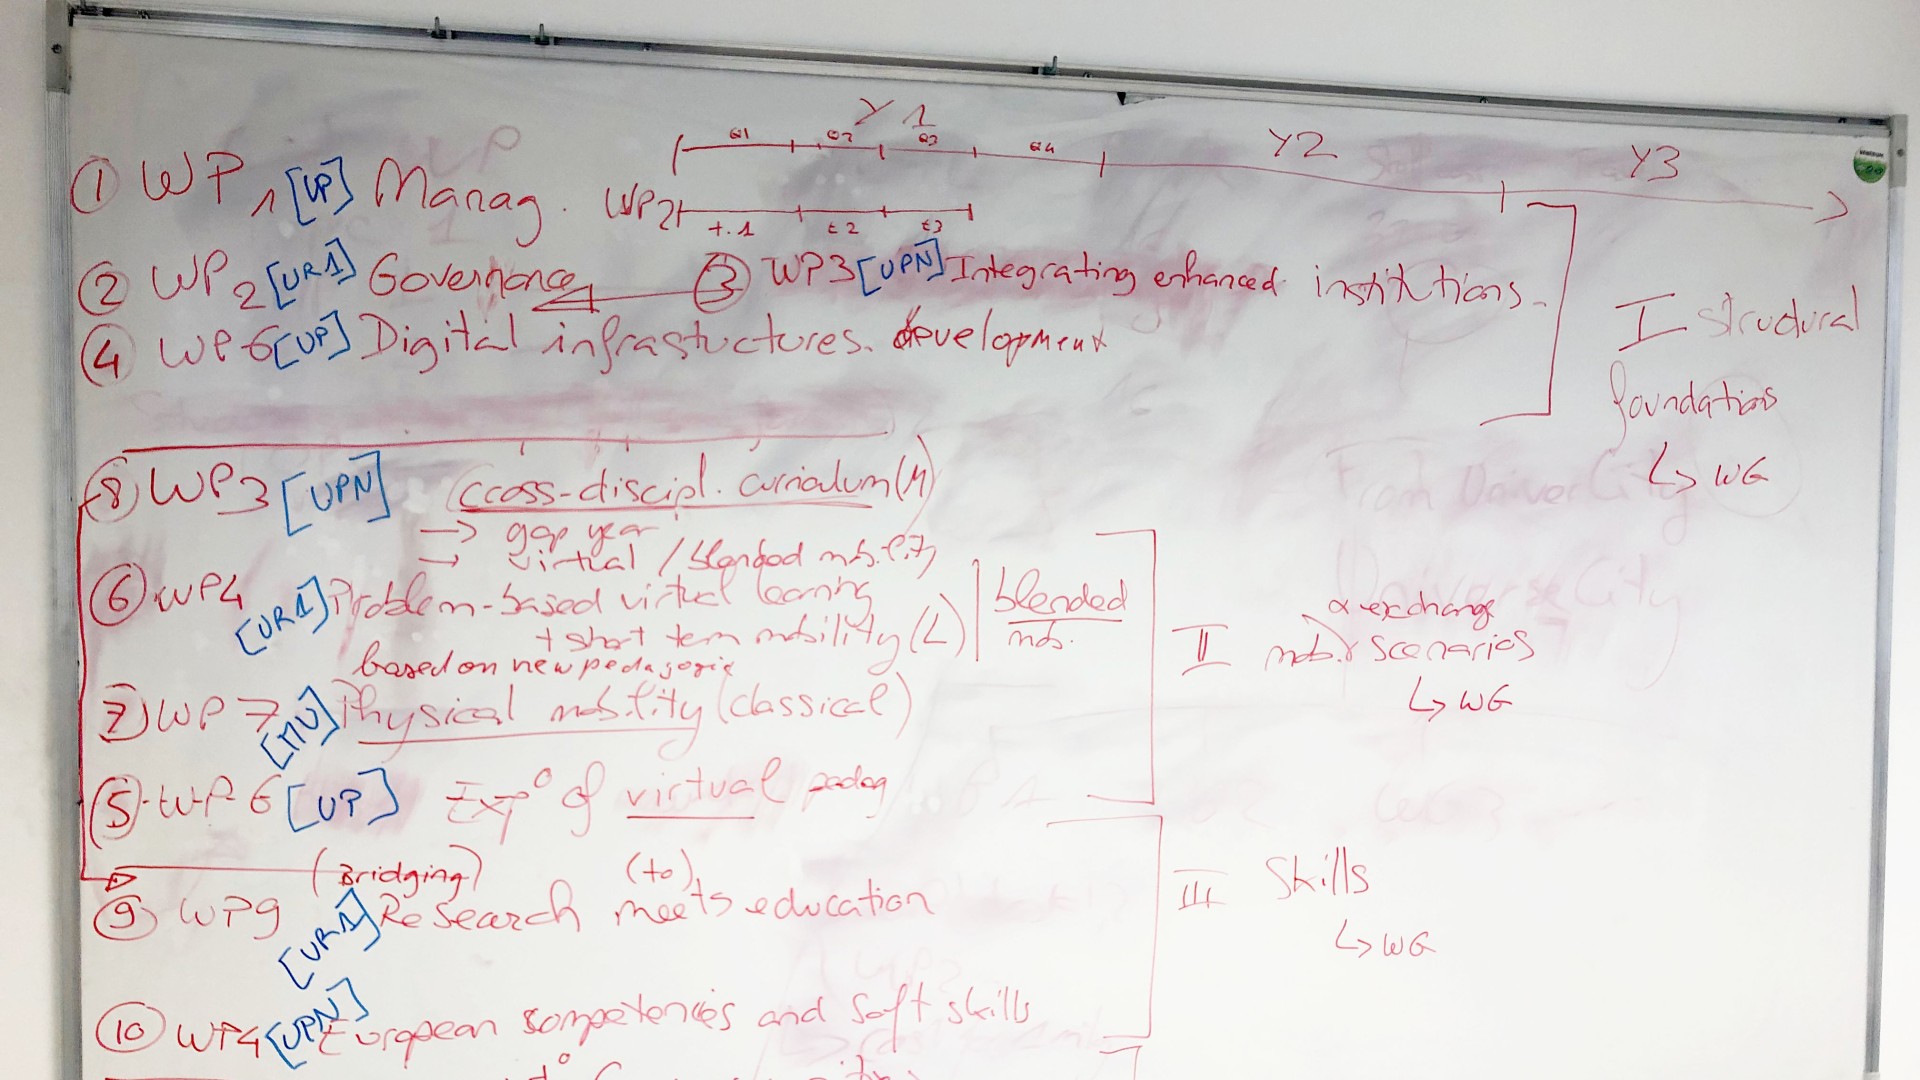 Y1
Q1 Q2 Q3 Q4 Y2 Y3
① WP1 [UP] Manag. WP2
t.1 t2 t3
② WP2 [UR1] Governance ③ WP3 [UPN] Integrating enhanced institutions.
④ WP6 [UP] Digital infrastuctures. development
I structural
foundations
↳ WG
⑧ WP3 [UPN] (cross-discipl. curriculum (M)
→ gap year
→ virtual / blended mobility
⑥ WP4 [UR1] Problem-based virtual learning
+ short term mobility (L) blended
mob.
based on new pedagogie
II mob. & exchange scenarios
↳ WG
⑦ WP7 [MU] Physical mobility (classical)
⑤ WP6 [UP] Exp° of virtual pedag
(Bridging) (to)
⑨ WP9 [UR1] Research meets education
III Skills
↳ WG
⑩ WP4 [UPN] European competencies and soft skills